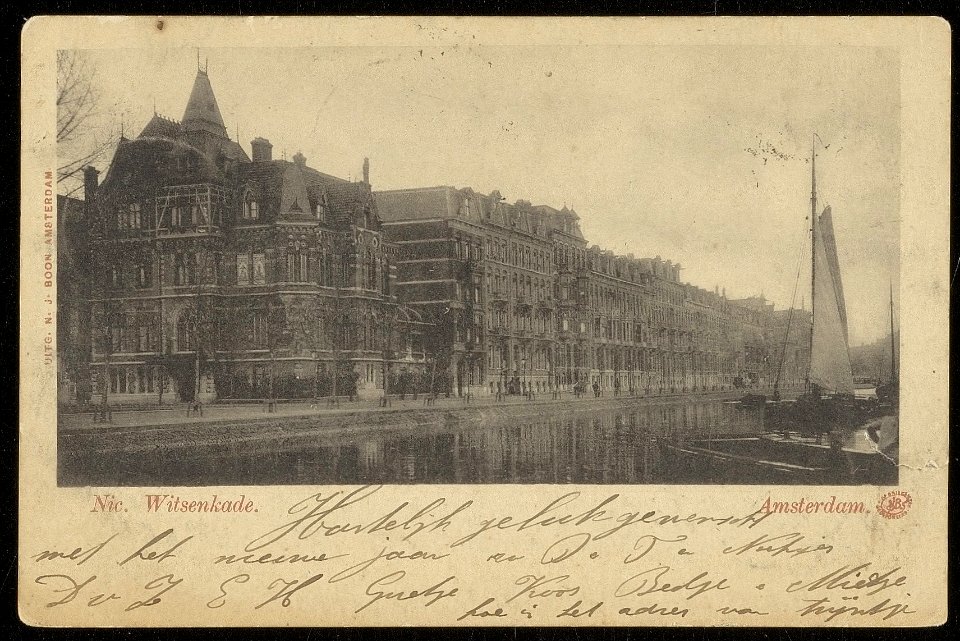 UITG. N. J. BOON AMSTERDAM
Nic. Witsenkade.
Amsterdam.
Hartelijk geluk gewenscht
met het nieuwe jaar
E H Guetje Koos Betje Mietje
hoe is het adres van trijntje